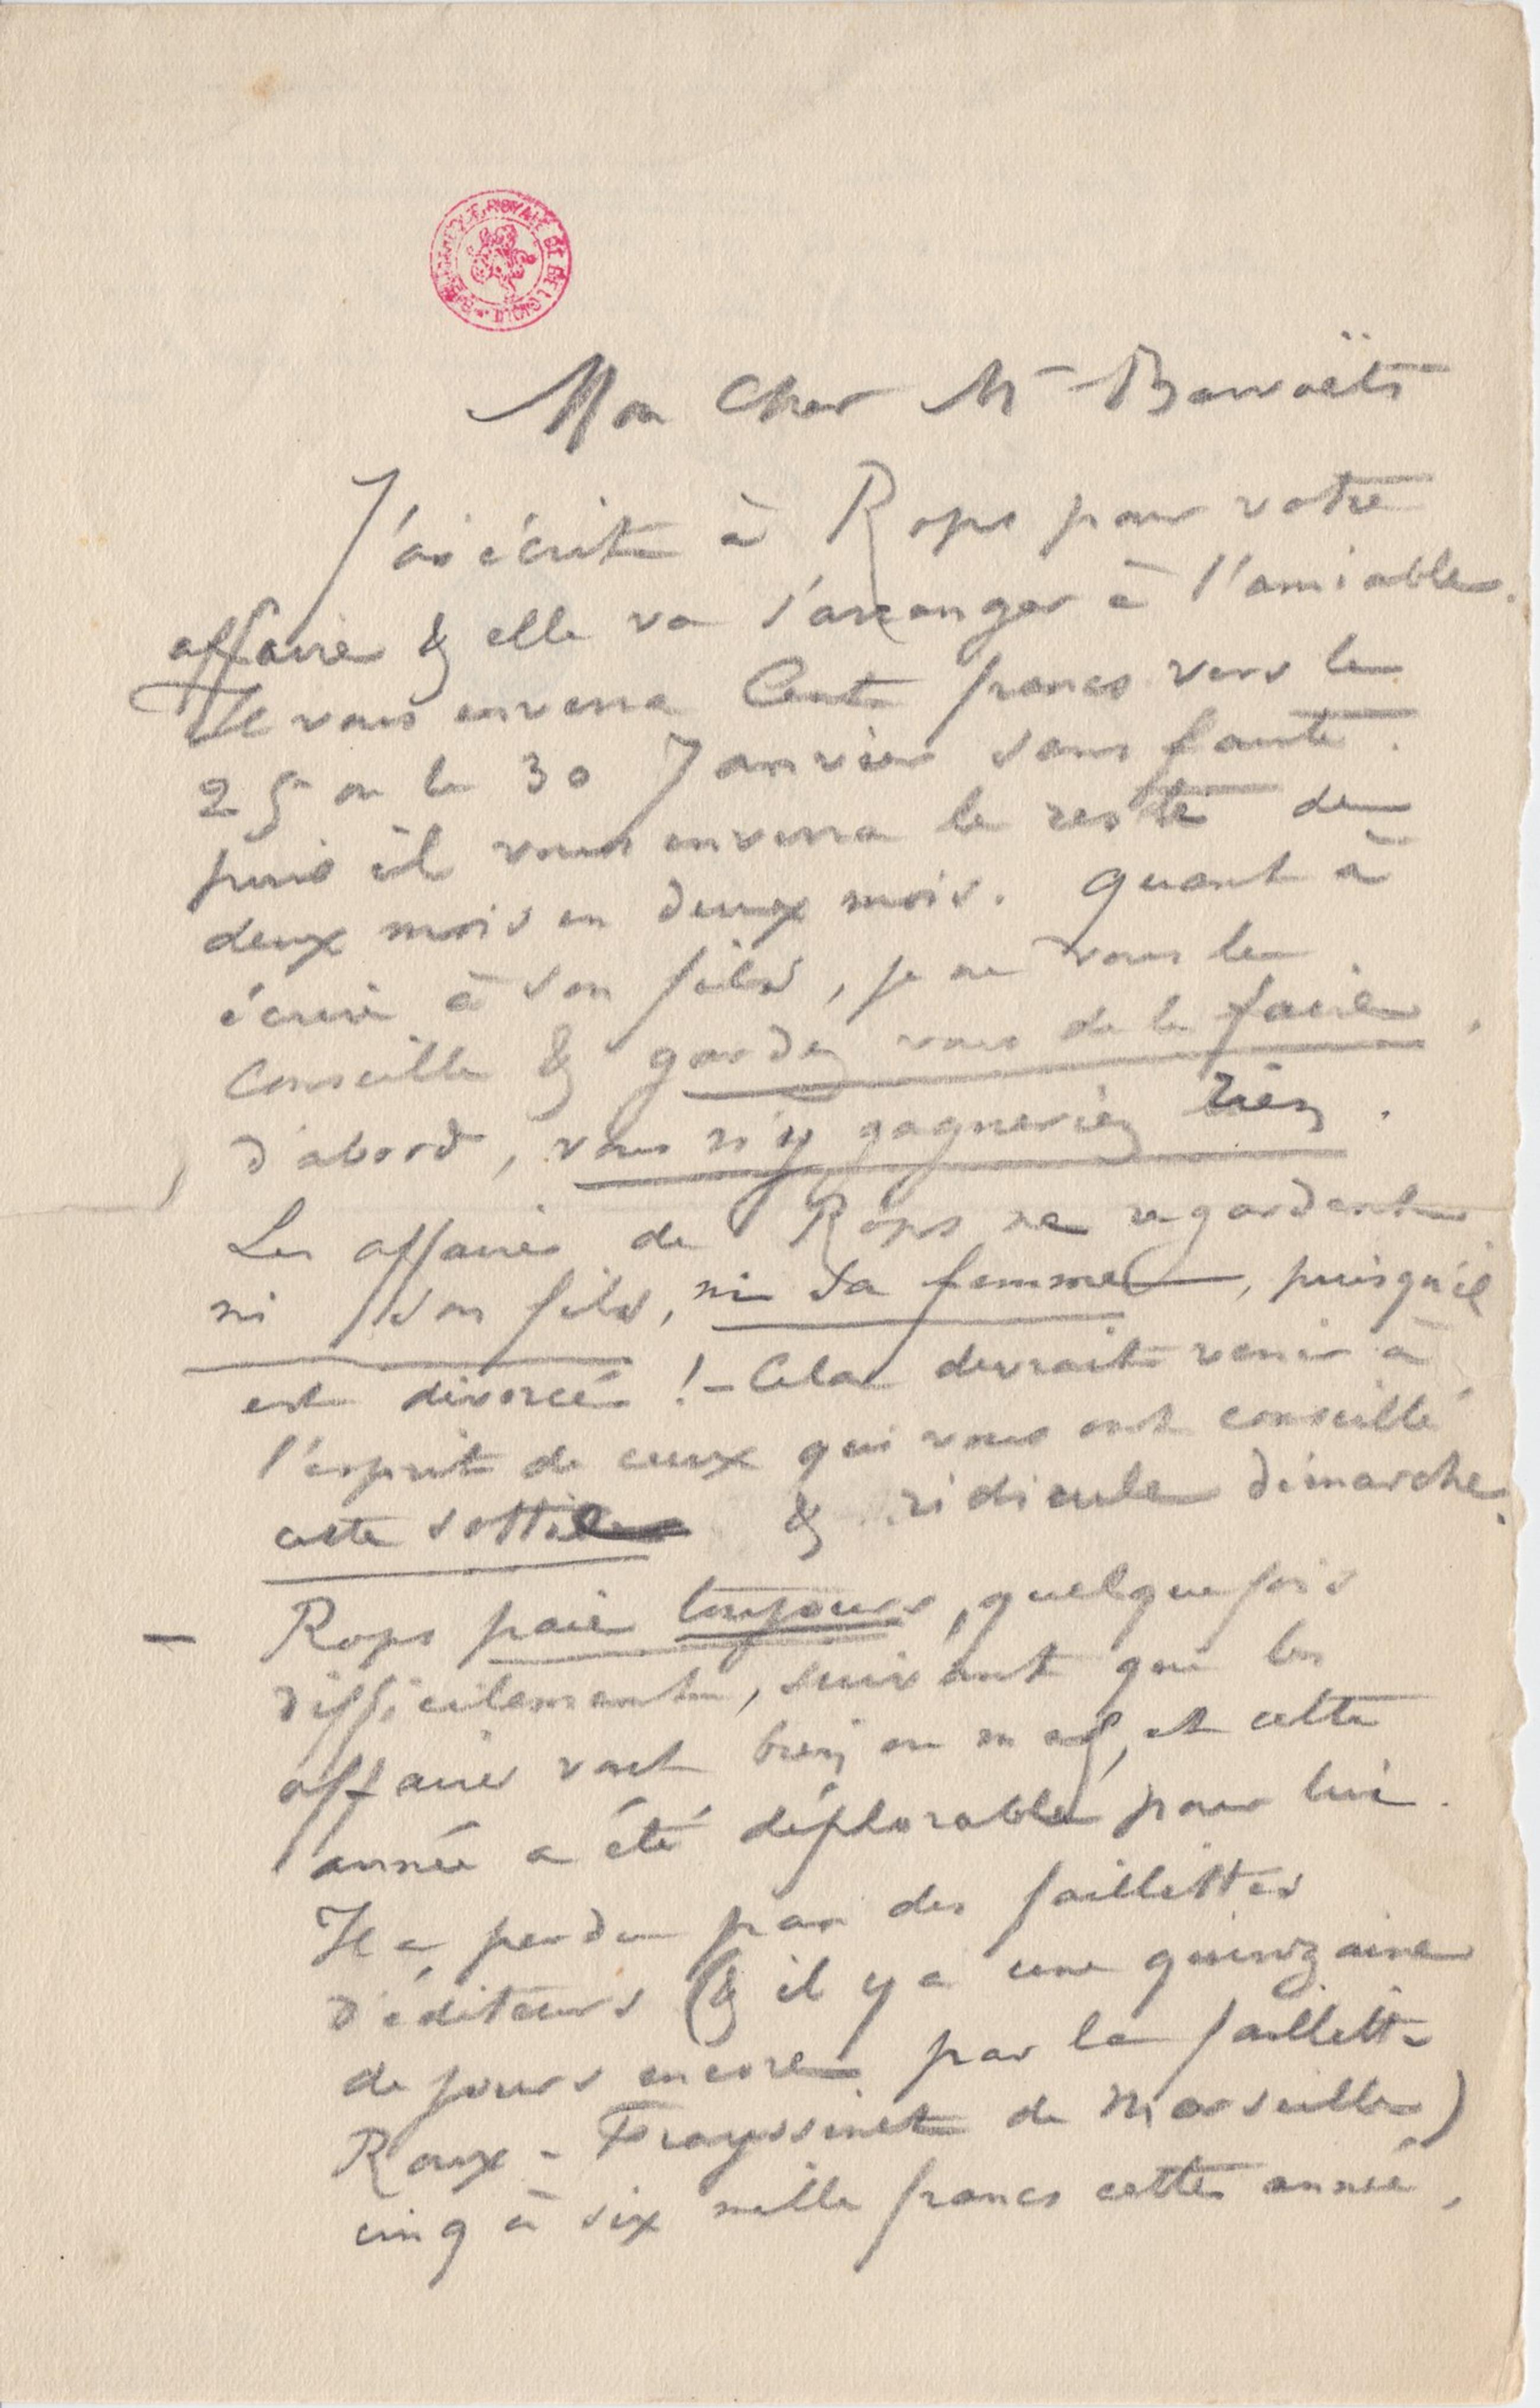 BIBLIOTHEQUE ROYALE DE BELGIQUE
Mon Cher Mr
J'ai écrit à Rops pour votre
affaire & elle va s'arranger à l'amiable.
Il vous enverra Cent francs vers le
25 ou le 30 Janvier sans faute.
puis il vous enverra le reste de
deux mois en deux mois. Quant à
écrire à son fils, je ne vous le
conseille & gardez vous de le faire,
d'abord, vous n'y gagneriez rien.
Les affaires de Rops ne regardent
ni son fils, ni sa femme, puisqu'il
est divorcé ! – Cela devrait venir à
l'esprit de ceux qui vous ont conseillé
cette sotte & ridicule démarche.
– Rops paie toujours, quelquefois
difficilement, suivant que les
affaires vont bien ou mal, et cette
année a été déplorable pour lui.
Il a perdu par des faillittes
d'éditeurs (& il y a une quinzaine
de jours encore par la faillitte
Roux – Frayssinet de Marseille)
cinq à six mille francs cette année,